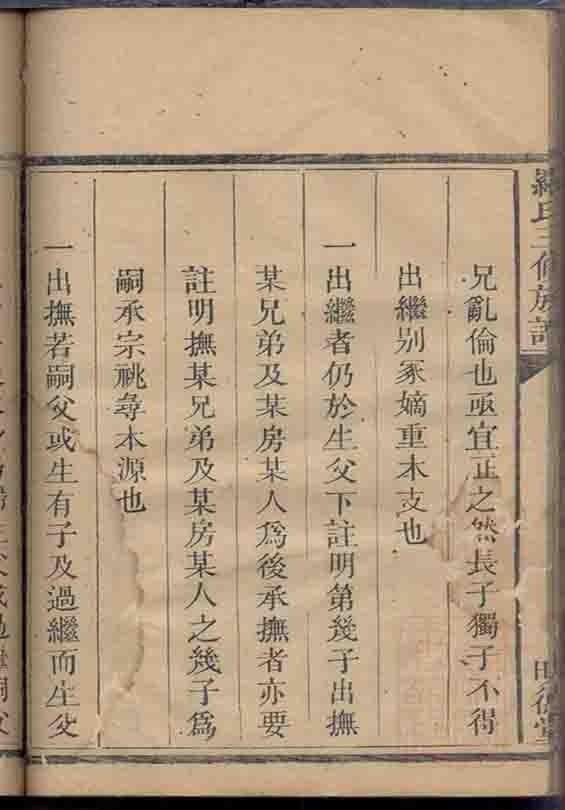 羅氏三修族譜
兄亂倫也亟宜正之然長子獨子不得
出繼别冢嫡重本支也
一出繼者仍於生父下註明第幾子出撫
某兄弟及某房某人爲後承撫者亦要
註明撫某兄弟及某房某人之幾子爲
嗣承宗祧尋本源也
一出撫若嗣父或生有子及過繼而生父